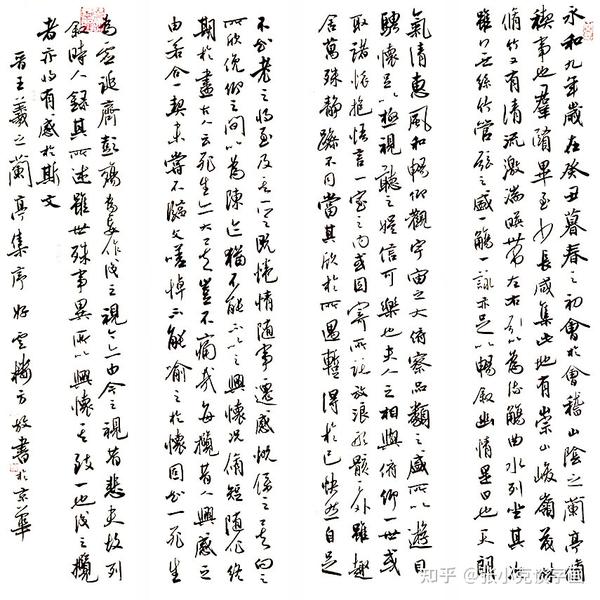 永和九年歲在癸丑暮春之初會於會稽山陰之蘭亭脩
禊事也羣賢畢至少長咸集此地有崇山峻嶺茂林
脩竹又有清流激湍暎帶左右引以為流觴曲水列坐其次
雖無絲竹管弦之盛一觴一詠亦足以暢敘幽情是日也天朗
氣清惠風和暢仰觀宇宙之大俯察品類之盛所以遊目
騁懷足以極視聽之娛信可樂也夫人之相與俯仰一世或
取諸懷抱悟言一室之內或因寄所託放浪形骸之外雖趣
舍萬殊靜躁不同當其欣於所遇暫得於己快然自足
不知老之將至及其所之既惓情隨事遷感慨係之矣向之
所欣俛仰之間以為陳迹猶不能不以之興懷況脩短隨化終
期於盡古人云死生亦大矣豈不痛哉每攬昔人興感之
由若合一契未嘗不臨文嗟悼不能喻之於懷固知一死生
為虛誕齊彭殤為妄作後之視今亦由今之視昔悲夫故列
敘時人錄其所述雖世殊事異所以興懷其致一也後之攬
者亦將有感於斯文
晉王羲之蘭亭集序 好雲樓方放書於京華
知乎 @张小克谈字画